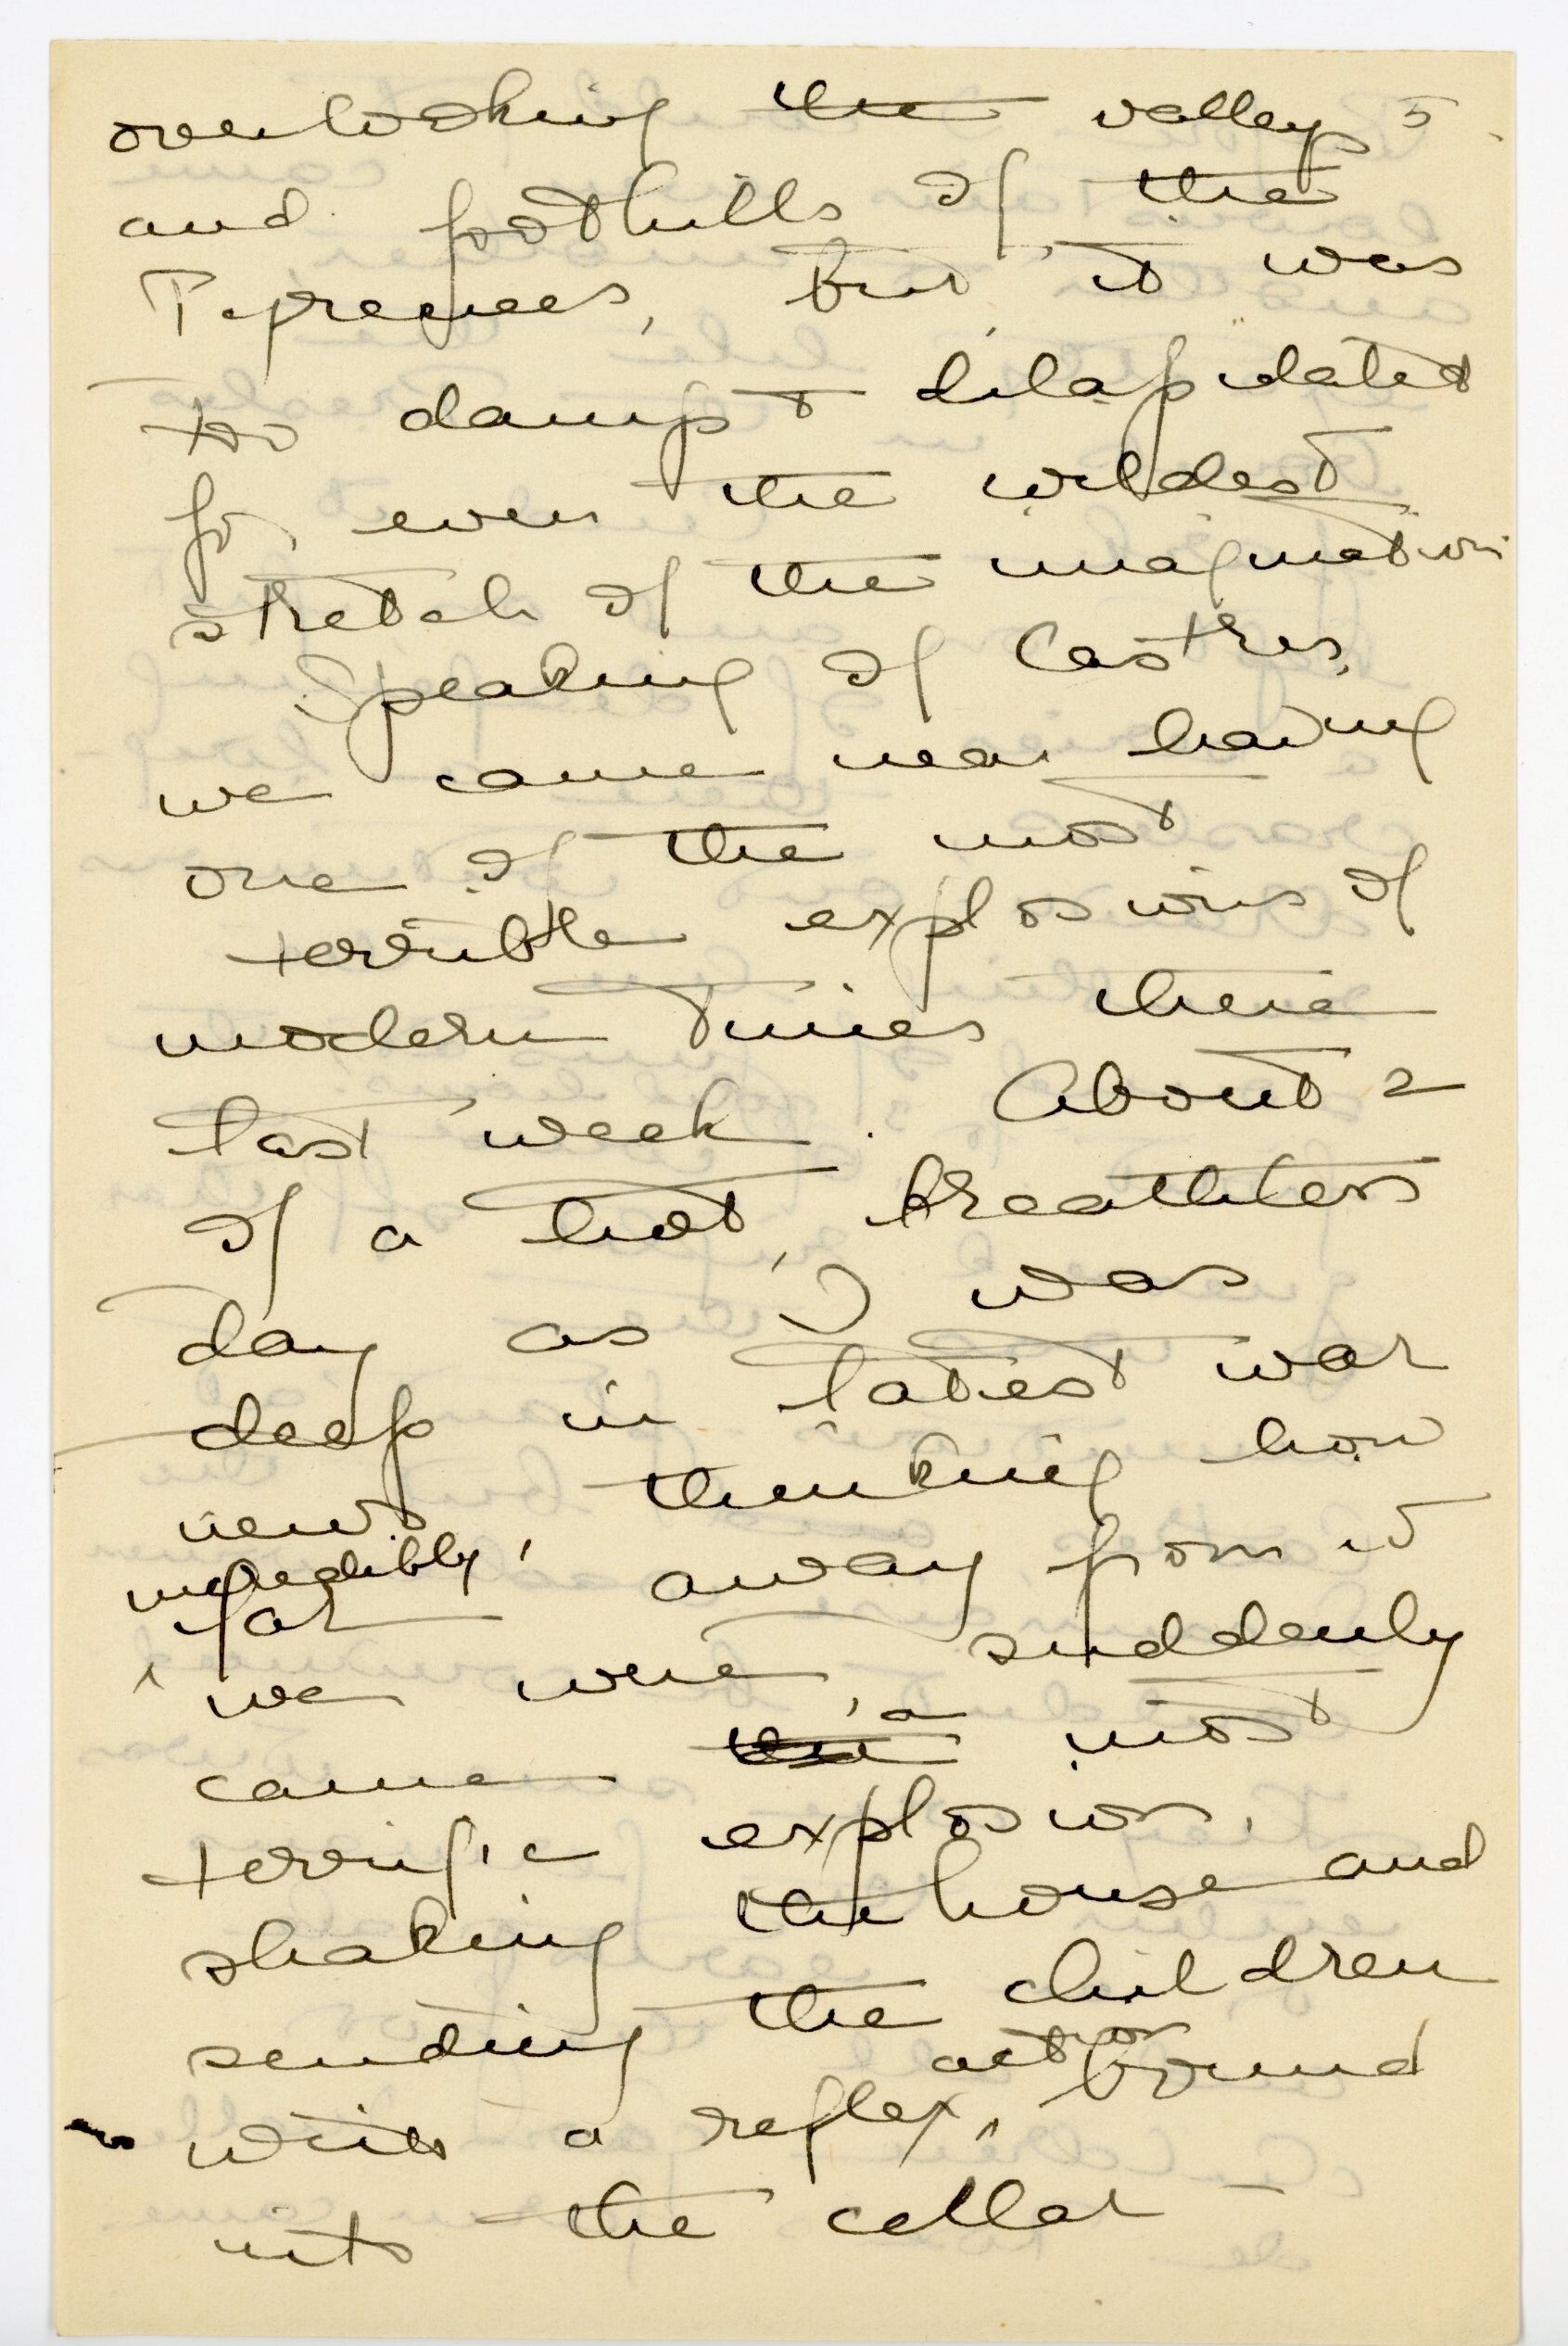 overlooking the valleys
and foothills of the
Pyrenees, but it was
too damp & dilapidated
for even the wildest
stretch of the imagination
Speaking of Castres,
we came near having
one of the most
terrible explosions of
modern times there
last week. About 2
of a hot, breathless
day as I was
deep in latest war
news, thinking how
incredibly far away from it
we were, suddenly
came a most
terrific explosion,
shaking the house and
sending the children
with a reflex action bound
into the cellar